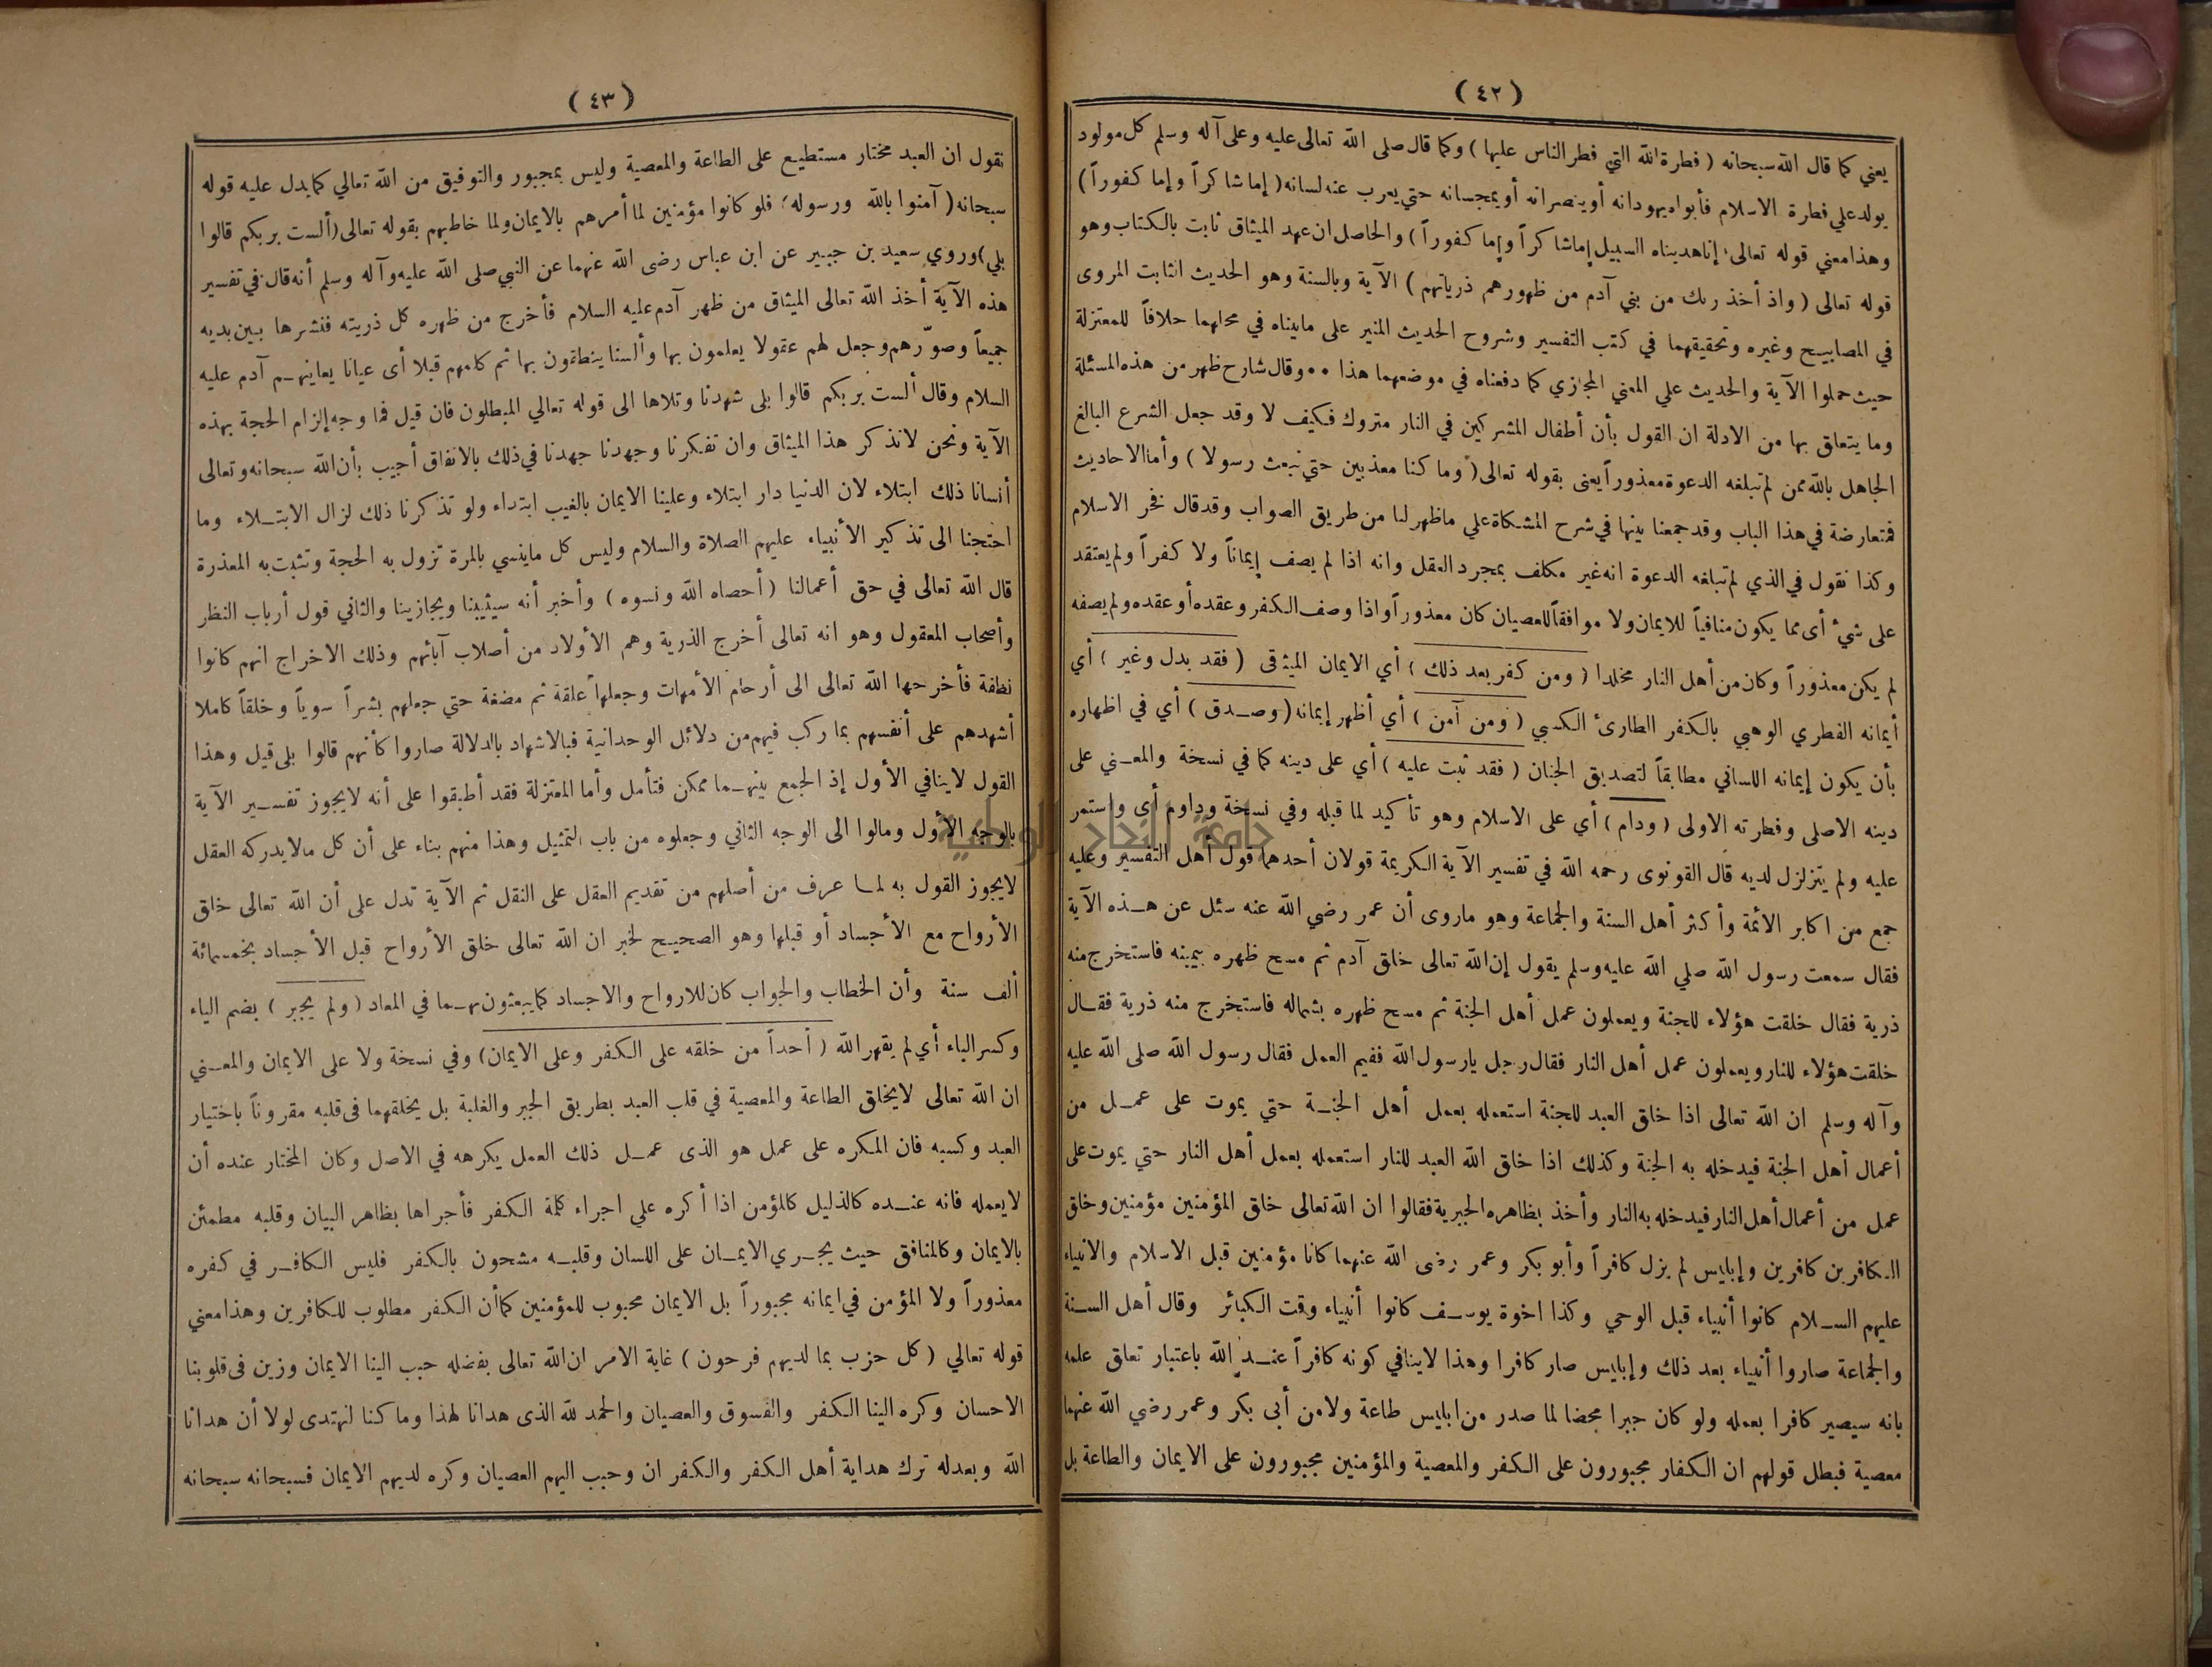 ( ٤٢ )
يعني كما قال الله سبحانه ( فطرة الله التي فطر الناس عليها ) وكما قال صلى الله تعالى عليه وعلى آله وسلم كل مولود
يولد علي فطرة الاسلام فأبواه يهودانه أو ينصرانه أو يمجسانه حتي يعرب عنه لسانه ( إما شاكراً وإما كفوراً )
وهذا معني قوله تعالى إنا هديناه السبيل إما شاكراً وإما كفوراً ) والحاصل ان عهد الميثاق ثابت بالكتاب وهو
قوله تعالى ( واذ أخذ ربك من بني آدم من ظهورهم ذرياتهم ) الآية وبالسنة وهو الحديث الثابت المروى
في المصابيح وغيره وتحقيقهما في كتب التفسير وشروح الحديث المنير على ما بيناه في محلهما خلافاً للمعتزلة
حيث حملوا الآية والحديث علي المعني المجازي كما دفعناه في موضعهما هذا ٠٠ وقال شارح ظهر من هذه المسئلة
وما يتعلق بها من الادلة ان القول بأن أطفال المشركين في النار متروك فكيف لا وقد جعل الشرع البالغ
الجاهل بالله ممن لم تبلغه الدعوة معذوراً يعنى بقوله تعالى ( وما كنا معذبين حتي نبعث رسولا ) وأما الاحاديث
فمتعارضة في هذا الباب وقد جمعنا بينها في شرح المشكاة علي ما ظهر لنا من طريق الصواب وقد قال فخر الاسلام
وكذا نقول في الذي لم تبلغه الدعوة انه غير مكلف بمجرد العقل وانه اذا لم يصف إيماناً ولا كفراً ولم يعتقد
على شيء أى مما يكون منافياً للايمان ولا موافقاً للعصيان كان معذوراً واذا وصف الكفر وعقده أو عقده ولم يصفه
لم يكن معذوراً وكان من أهل النار مخلدا ( ومن كفر بعد ذلك ) أي الايمان الميثاقى ( فقد بدل وغير ) أي
أيمانه الفطري الوهبي بالكفر الطارئ الكسبي ( ومن آمن ) أي أظهر إيمانه ( وصدق ) أي في اظهاره
بأن يكون إيمانه اللساني مطابقاً لتصديق الجنان ( فقد ثبت عليه ) أي على دينه كما في نسخة والمعني على
دينه الاصلى وفطرته الاولى ( ودام ) أي على الاسلام وهو تأكيد لما قبله وفي نسخة وداوم أى واستمر
عليه ولم يتزلزل لديه قال القونوى رحمه الله في تفسير الآية الكريمة قولان أحدهما قول أهل التفسير وعليه
جمع من اكابر الائمة وأكثر أهل السنة والجماعة وهو ماروى أن عمر رضي الله عنه سئل عن هذه الآية
فقال سمعت رسول الله صلي الله عليه وسلم يقول إن الله تعالى خلق آدم ثم مسح ظهره بيمينه فاستخرج منه
ذرية فقال خلقت هؤلاء للجنة ويعملون عمل أهل الجنة ثم مسح ظهره بشماله فاستخرج منه ذرية فقال
خلقت هؤلاء للنار ويعملون عمل أهل النار فقال رجل يا رسول الله ففيم العمل فقال رسول الله صلى الله عليه
وآله وسلم ان الله تعالى اذا خلق العبد للجنة استعمله بعمل أهل الجنة حتي يموت على عمل من
أعمال أهل الجنة فيدخله به الجنة وكذلك اذا خلق الله العبد للنار استعمله بعمل أهل النار حتي يموت على
عمل من أعمال أهل النار فيدخله به النار وأخذ بظاهره الجبرية فقالوا ان الله تعالى خلق المؤمنين مؤمنين وخلق
الكافرين كافرين وإبليس لم يزل كافراً وأبو بكر وعمر رضى الله عنهما كانا مؤمنين قبل الاسلام والانبياء
عليهم السلام كانوا أنبياء قبل الوحي وكذا اخوة يوسف كانوا أنبياء وقت الكبائر وقال أهل السنة
والجماعة صاروا أنبياء بعد ذلك وإبليس صار كافرا وهذا لاينافي كونه كافراً عند الله باعتبار تعلق علمه
بانه سيصير كافرا بعمله ولو كان جبرا محضا لما صدر من ابليس طاعة ولامن أبى بكر وعمر رضي الله عنهما
معصية فبطل قولهم ان الكفار مجبورون على الكفر والمعصية والمؤمنين مجبورون على الايمان والطاعة بل
( ٤٣ )
نقول ان العبد مختار مستطيع على الطاعة والمعصية وليس بمجبور والتوفيق من الله تعالي كما يدل عليه قوله
سبحانه ( آمنوا بالله ورسوله ) فلو كانوا مؤمنين لما أمرهم بالايمان ولما خاطبهم بقوله تعالى ( ألست بربكم قالوا
بلي ) وروي سعيد بن جبير عن ابن عباس رضى الله عنهما عن النبي صلى الله عليه وآله وسلم أنه قال في تفسير
هذه الآية أخذ الله تعالى الميثاق من ظهر آدم عليه السلام فأخرج من ظهره كل ذريته فنشرها بين يديه
جميعاً وصوّرهم وجعل لهم عقولا يعلمون بها وألسنا ينطقون بها ثم كلمهم قبلا أى عيانا يعاينهم آدم عليه
السلام وقال ألست بربكم قالوا بلى شهدنا وتلاها الى قوله تعالي المبطلون فان قيل فما وجه إلزام الحجة بهذه
الآية ونحن لانذكر هذا الميثاق وان تفكرنا وجهدنا جهدنا في ذلك بالاتفاق أجيب بأن الله سبحانه وتعالى
أنسانا ذلك ابتلاء لان الدنيا دار ابتلاء وعلينا الايمان بالغيب ابتداء ولو تذكرنا ذلك لزال الابتلاء وما
احتجنا الى تذكير الأنبياء عليهم الصلاة والسلام وليس كل ماينسي بالمرة تزول به الحجة وتثبت به المعذرة
قال الله تعالى في حق أعمالنا ( أحصاه الله ونسوه ) وأخبر أنه سيثيبنا ويجازينا والثاني قول أرباب النظر
وأصحاب المعقول وهو انه تعالى أخرج الذرية وهم الأولاد من أصلاب آبائهم وذلك الاخراج انهم كانوا
نطفة فأخرجها الله تعالى الى أرحام الأمهات وجعلها علقة ثم مضغة حتي جعلهم بشراً سوياً وخلقاً كاملا
أشهدهم على أنفسهم بما ركب فيهم من دلائل الوحدانية فبالاشهاد بالدلالة صاروا كأنهم قالوا بلى قيل وهذا
القول لاينافي الأول إذ الجمع بينهما ممكن فتأمل وأما المعتزلة فقد أطبقوا على أنه لايجوز تفسير الآية
بالوجه الأول ومالوا الى الوجه الثاني وجعلوه من باب التمثيل وهذا منهم بناء على أن كل مالايدركه العقل
لايجوز القول به لما عرف من أصلهم من تقديم العقل على النقل ثم الآية تدل على أن الله تعالى خلق
الأرواح مع الأجساد أو قبلها وهو الصحيح لخبر ان الله تعالى خلق الأرواح قبل الأجساد بخمسمائة
ألف سنة وأن الخطاب والجواب كان للارواح والاجساد كما يبعثون بهما في المعاد ( ولم يجبر ) بضم الياء
وكسر الباء أي لم يقهر الله ( أحداً من خلقه على الكفر وعلى الايمان ) وفي نسخة ولا على الايمان والمعني
ان الله تعالى لايخلق الطاعة والمعصية في قلب العبد بطريق الجبر والغلبة بل يخلقهما فى قلبه مقروناً باختيار
العبد وكسبه فان المكره على عمل هو الذى عمل ذلك العمل يكرهه في الاصل وكان المختار عنده أن
لايعمله فانه عنده كالذليل كالمؤمن اذا أكره علي اجراء كلمة الكفر فأجراها بظاهر البيان وقلبه مطمئن
بالايمان وكالمنافق حيث يجري الايمان على اللسان وقلبه مشحون بالكفر فليس الكافر في كفره
معذوراً ولا المؤمن في ايمانه مجبوراً بل الايمان محبوب للمؤمنين كما أن الكفر مطلوب للكافرين وهذا معني
قوله تعالي ( كل حزب بما لديهم فرحون ) غاية الامر ان الله تعالى بفضله حبب الينا الايمان وزين فى قلوبنا
الاحسان وكره الينا الكفر والفسوق والعصيان والحمد لله الذى هدانا لهذا وما كنا لنهتدى لولا أن هدانا
الله وبعدله ترك هداية أهل الكفر والكفران وحبب اليهم العصيان وكره لديهم الايمان فسبحانه سبحانه
جامعة النجاح الوطنية